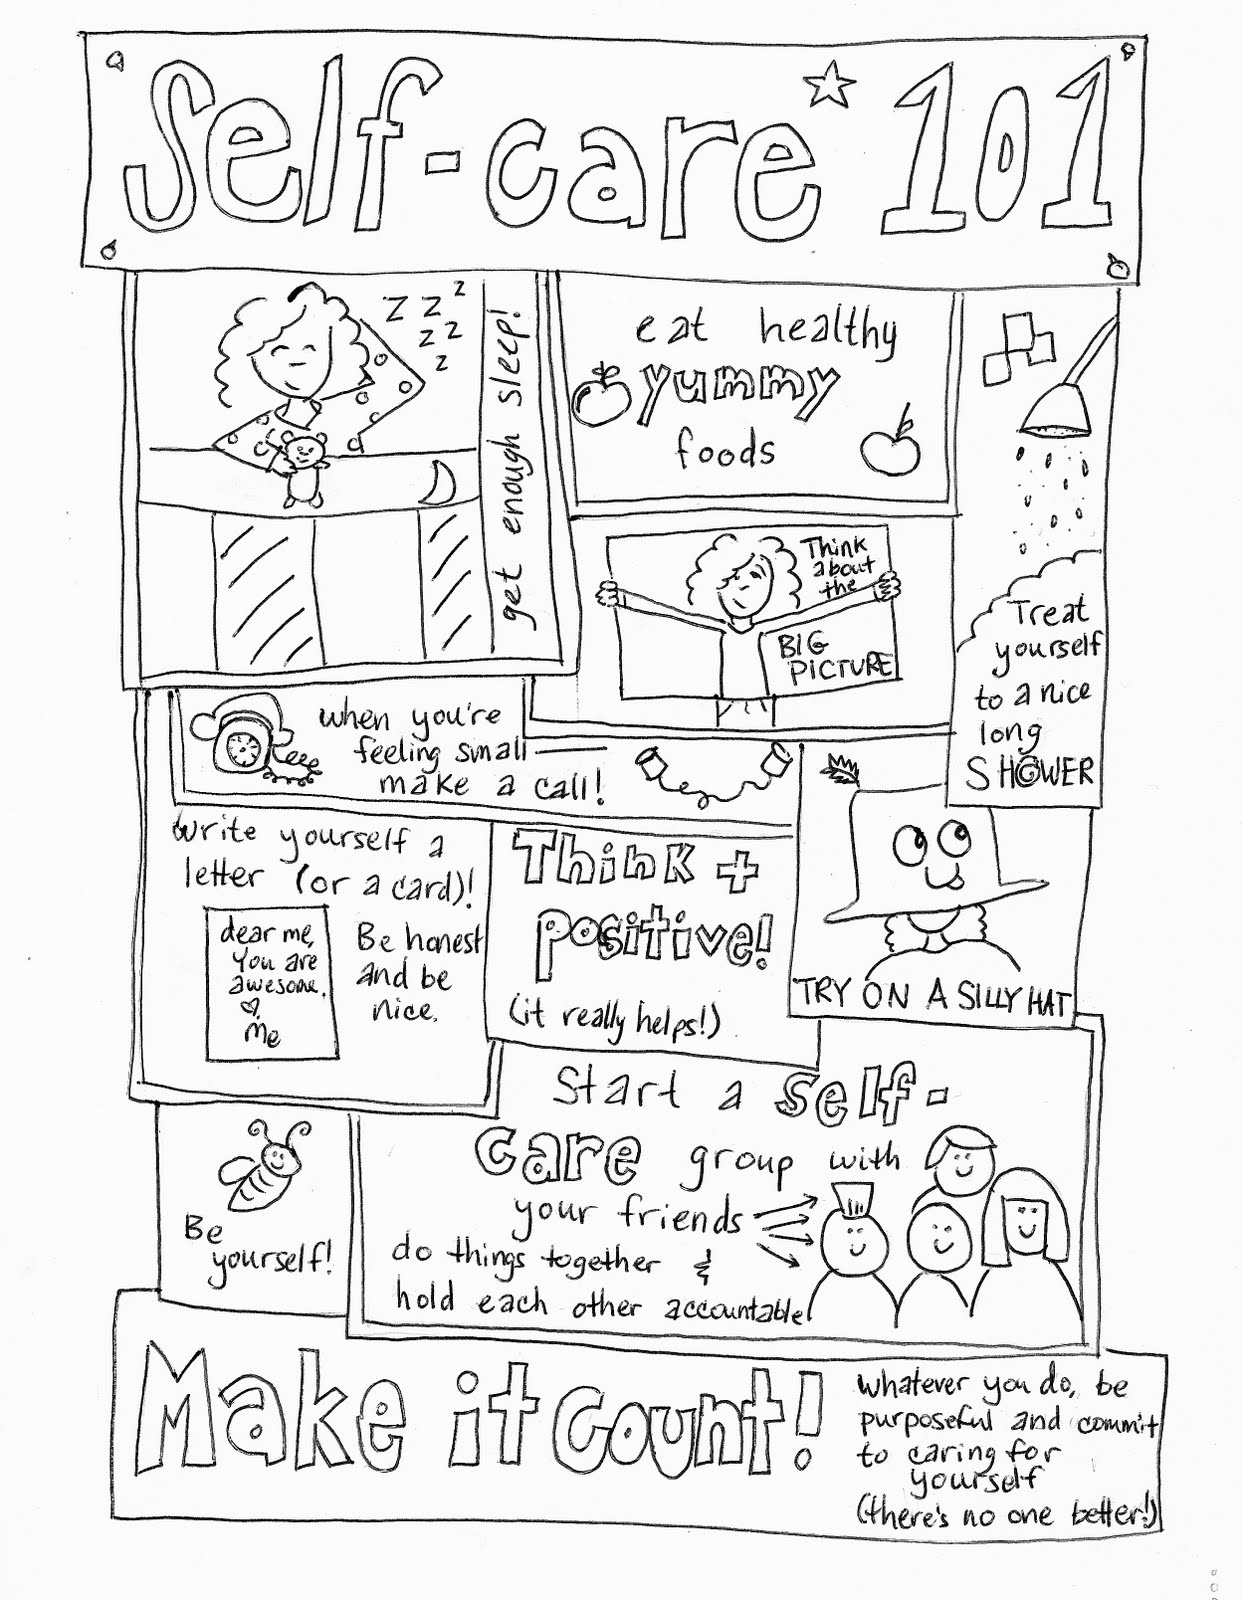 Self-care 101
z z z
z z
z
get enough sleep!
eat healthy
yummy
foods
Think
about
the
BIG
PICTURE
Treat
yourself
to a nice
long
SHOWER
when you're
feeling small
make a call!
Write yourself a
letter (or a card)!
dear me,
you are
awesome.
me
Be honest
and be
nice.
Think +
positive!
(it really helps!)
TRY ON A SILLY HAT
Be
yourself!
Start a self-
care group with
your friends
do things together &
hold each other accountable
Make it count!
whatever you do, be
purposeful and commit
to caring for
yourself
(there's no one better!)